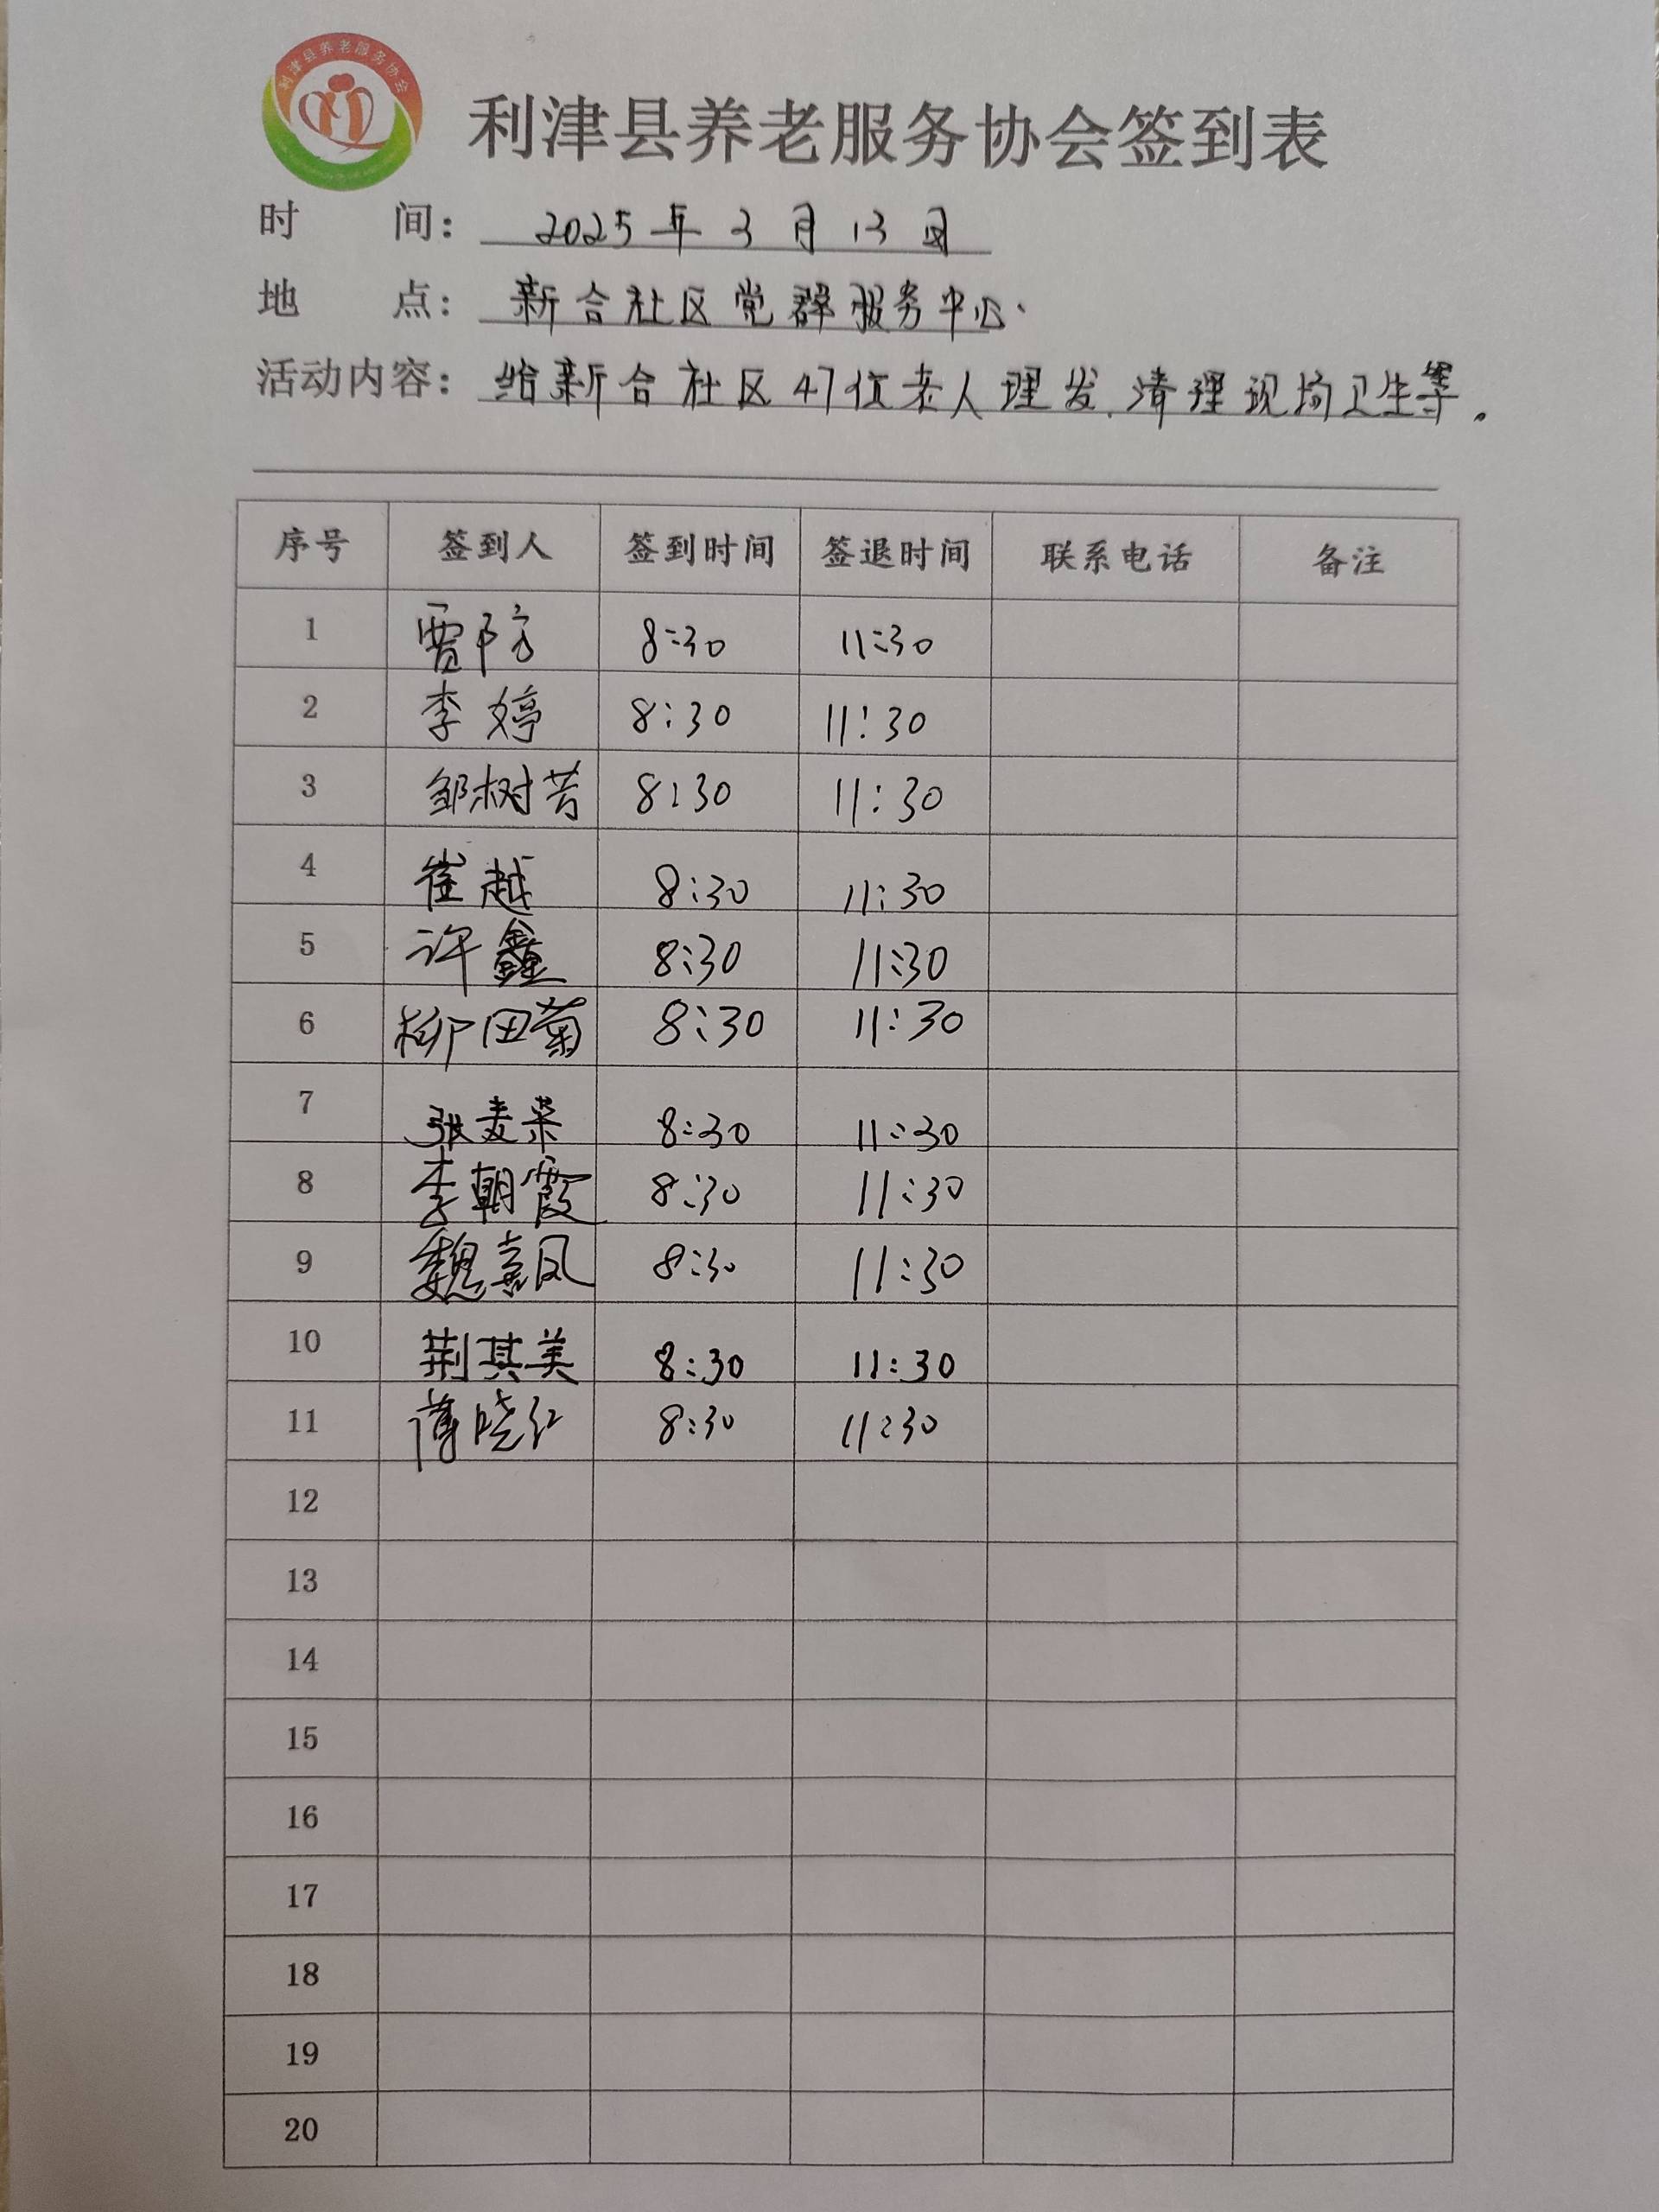 利津县养老服务协会
利津县养老服务协会签到表
时 间: 2025年3月13日
地 点: 新合社区党群服务中心.
活动内容: 给新合社区47位老人理发、清理现场卫生等。
序号 签到人 签到时间 签退时间 联系电话 备注
1 贾防 8:30 11:30
2 李婷 8:30 11:30
3 邹树芳 8:30 11:30
4 崔越 8:30 11:30
5 许鑫 8:30 11:30
6 柳田菊 8:30 11:30
7 张麦荣 8:30 11:30
8 李朝霞 8:30 11:30
9 魏嘉凤 8:30 11:30
10 荆其美 8:30 11:30
11 薄晓红 8:30 11:30
12
13
14
15
16
17
18
19
20